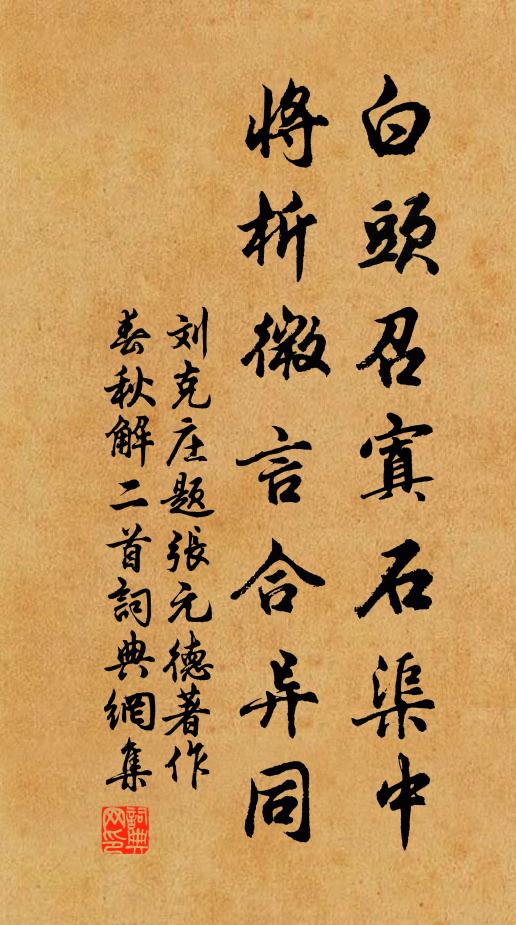 白頭召寘石渠中
將析微言合异同
刘克庄题張元德著作
春秋解二首詞典網集
詞典
网印